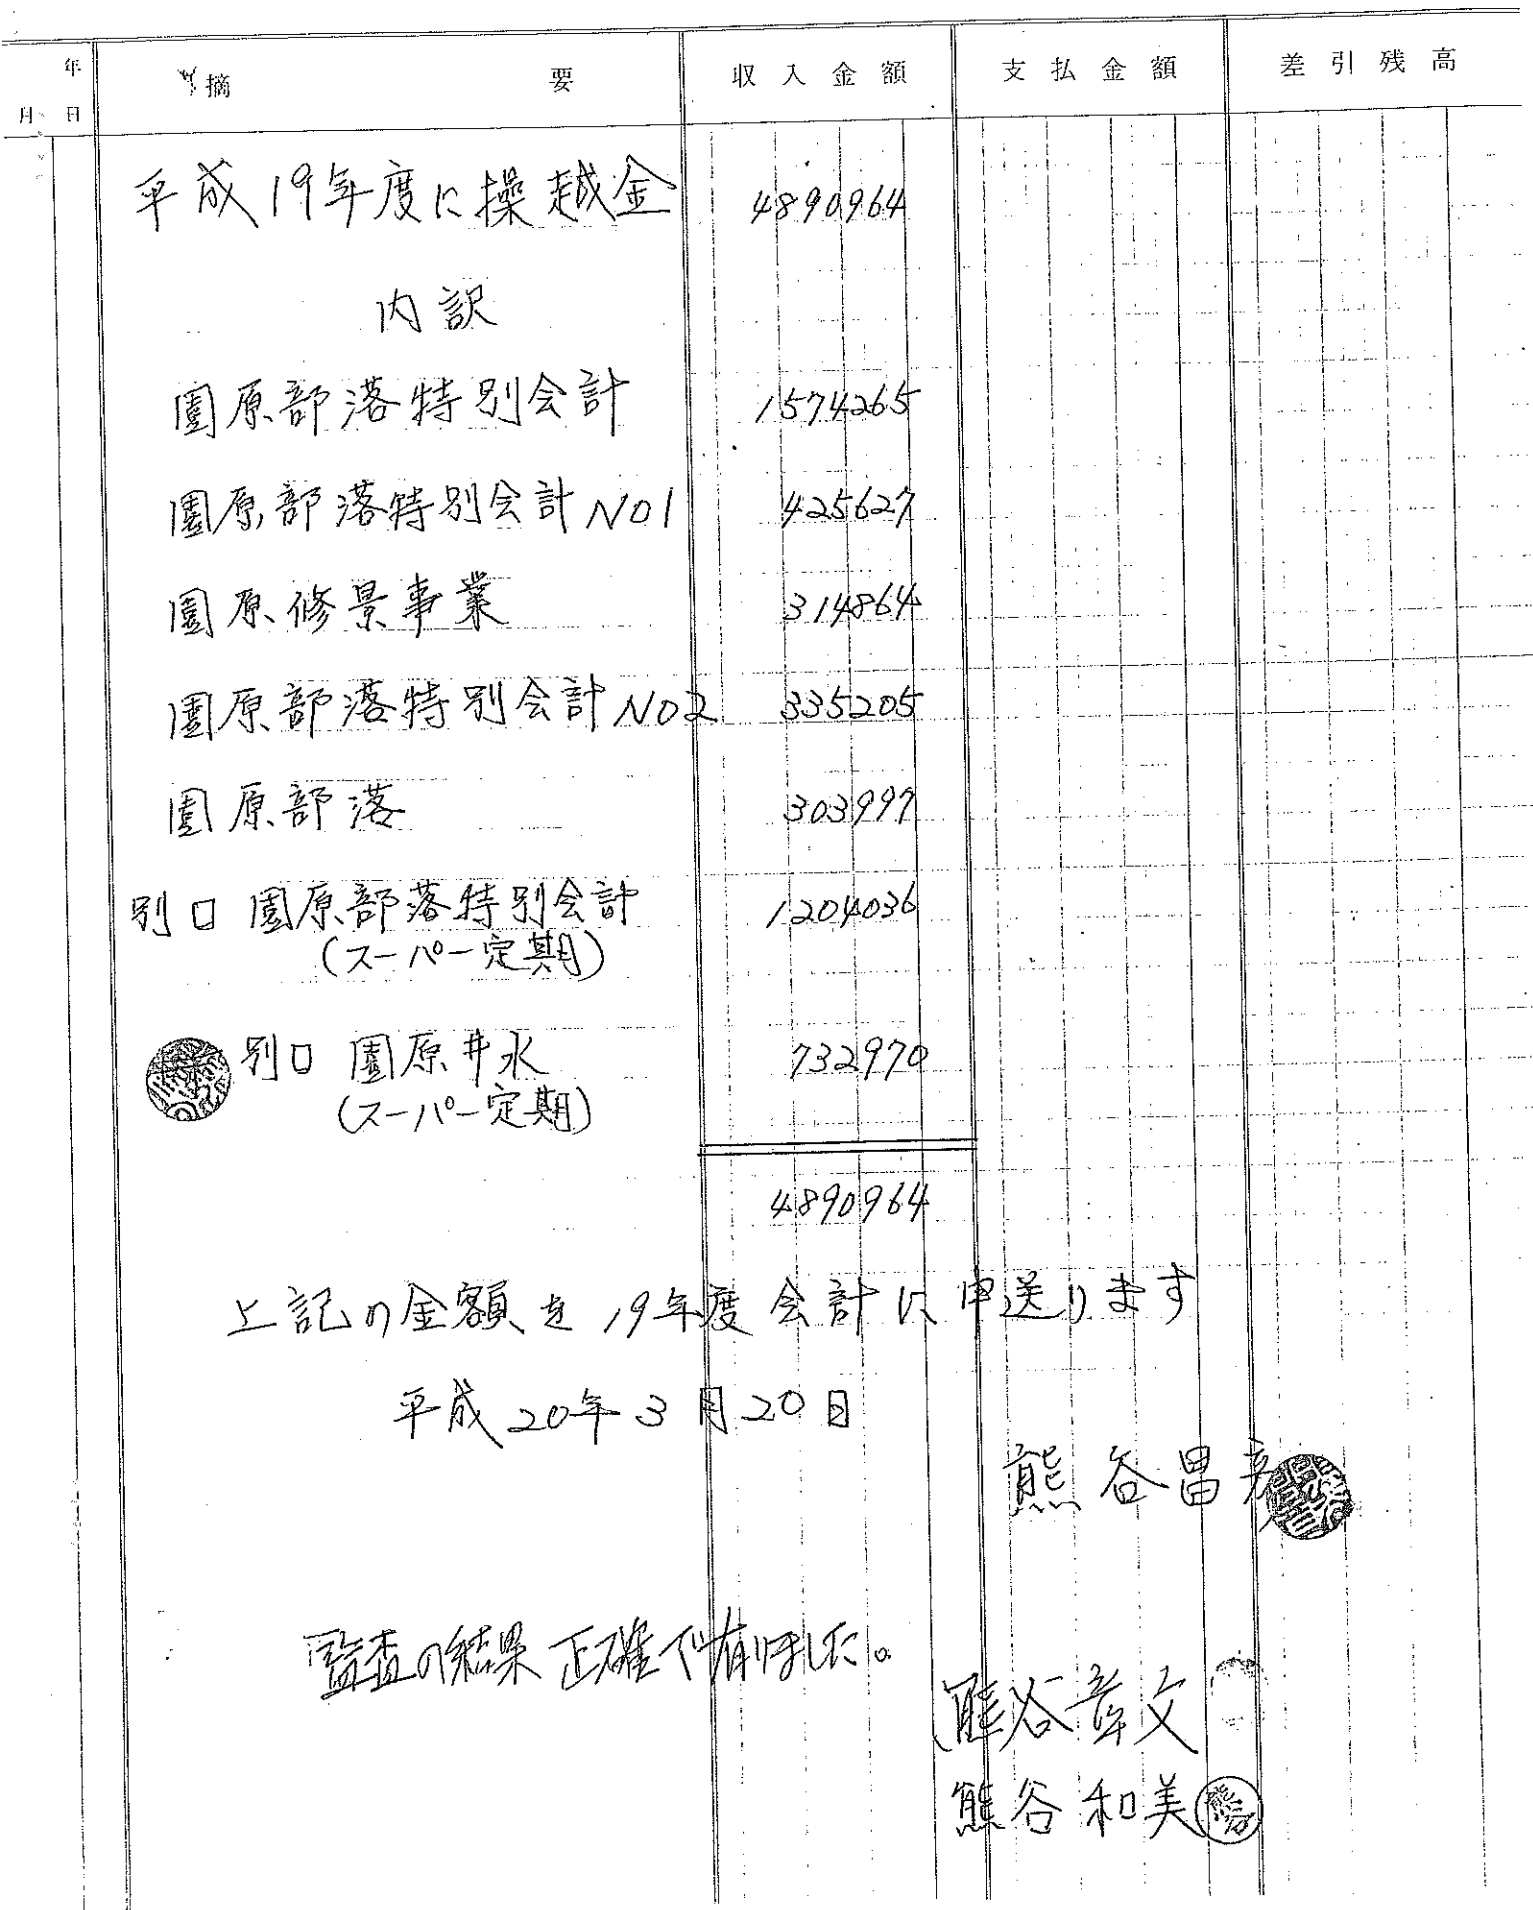 年
月 日 摘 要 収入金額 支払金額 差引残高
平成19年度に操越金 4890964
内訳
園原部落特別会計 1574265
園原部落特別会計NO1 425627
園原修景事業 314864
園原部落特別会計NO2 335205
園原部落 303997
別口 園原部落特別会計 1204036
(スーパー定期)
別口 園原井水 732970
(スーパー定期)
4890964
上記の金額を19年度会計に申送ります
平成20年3月20日
熊谷昌彦
監査の結果正確で有りました。
熊谷章文
熊谷和美 熊谷